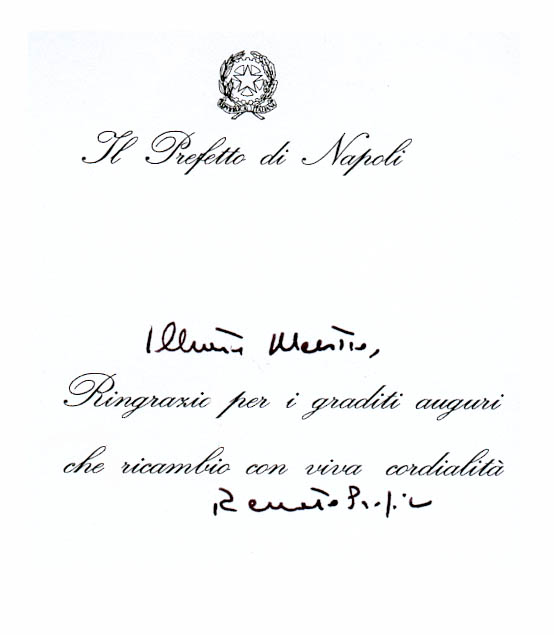 Il Prefetto di Napoli
Illustre Maestro,
Ringrazio per i graditi auguri
che ricambio con viva cordialità
Renato Profili